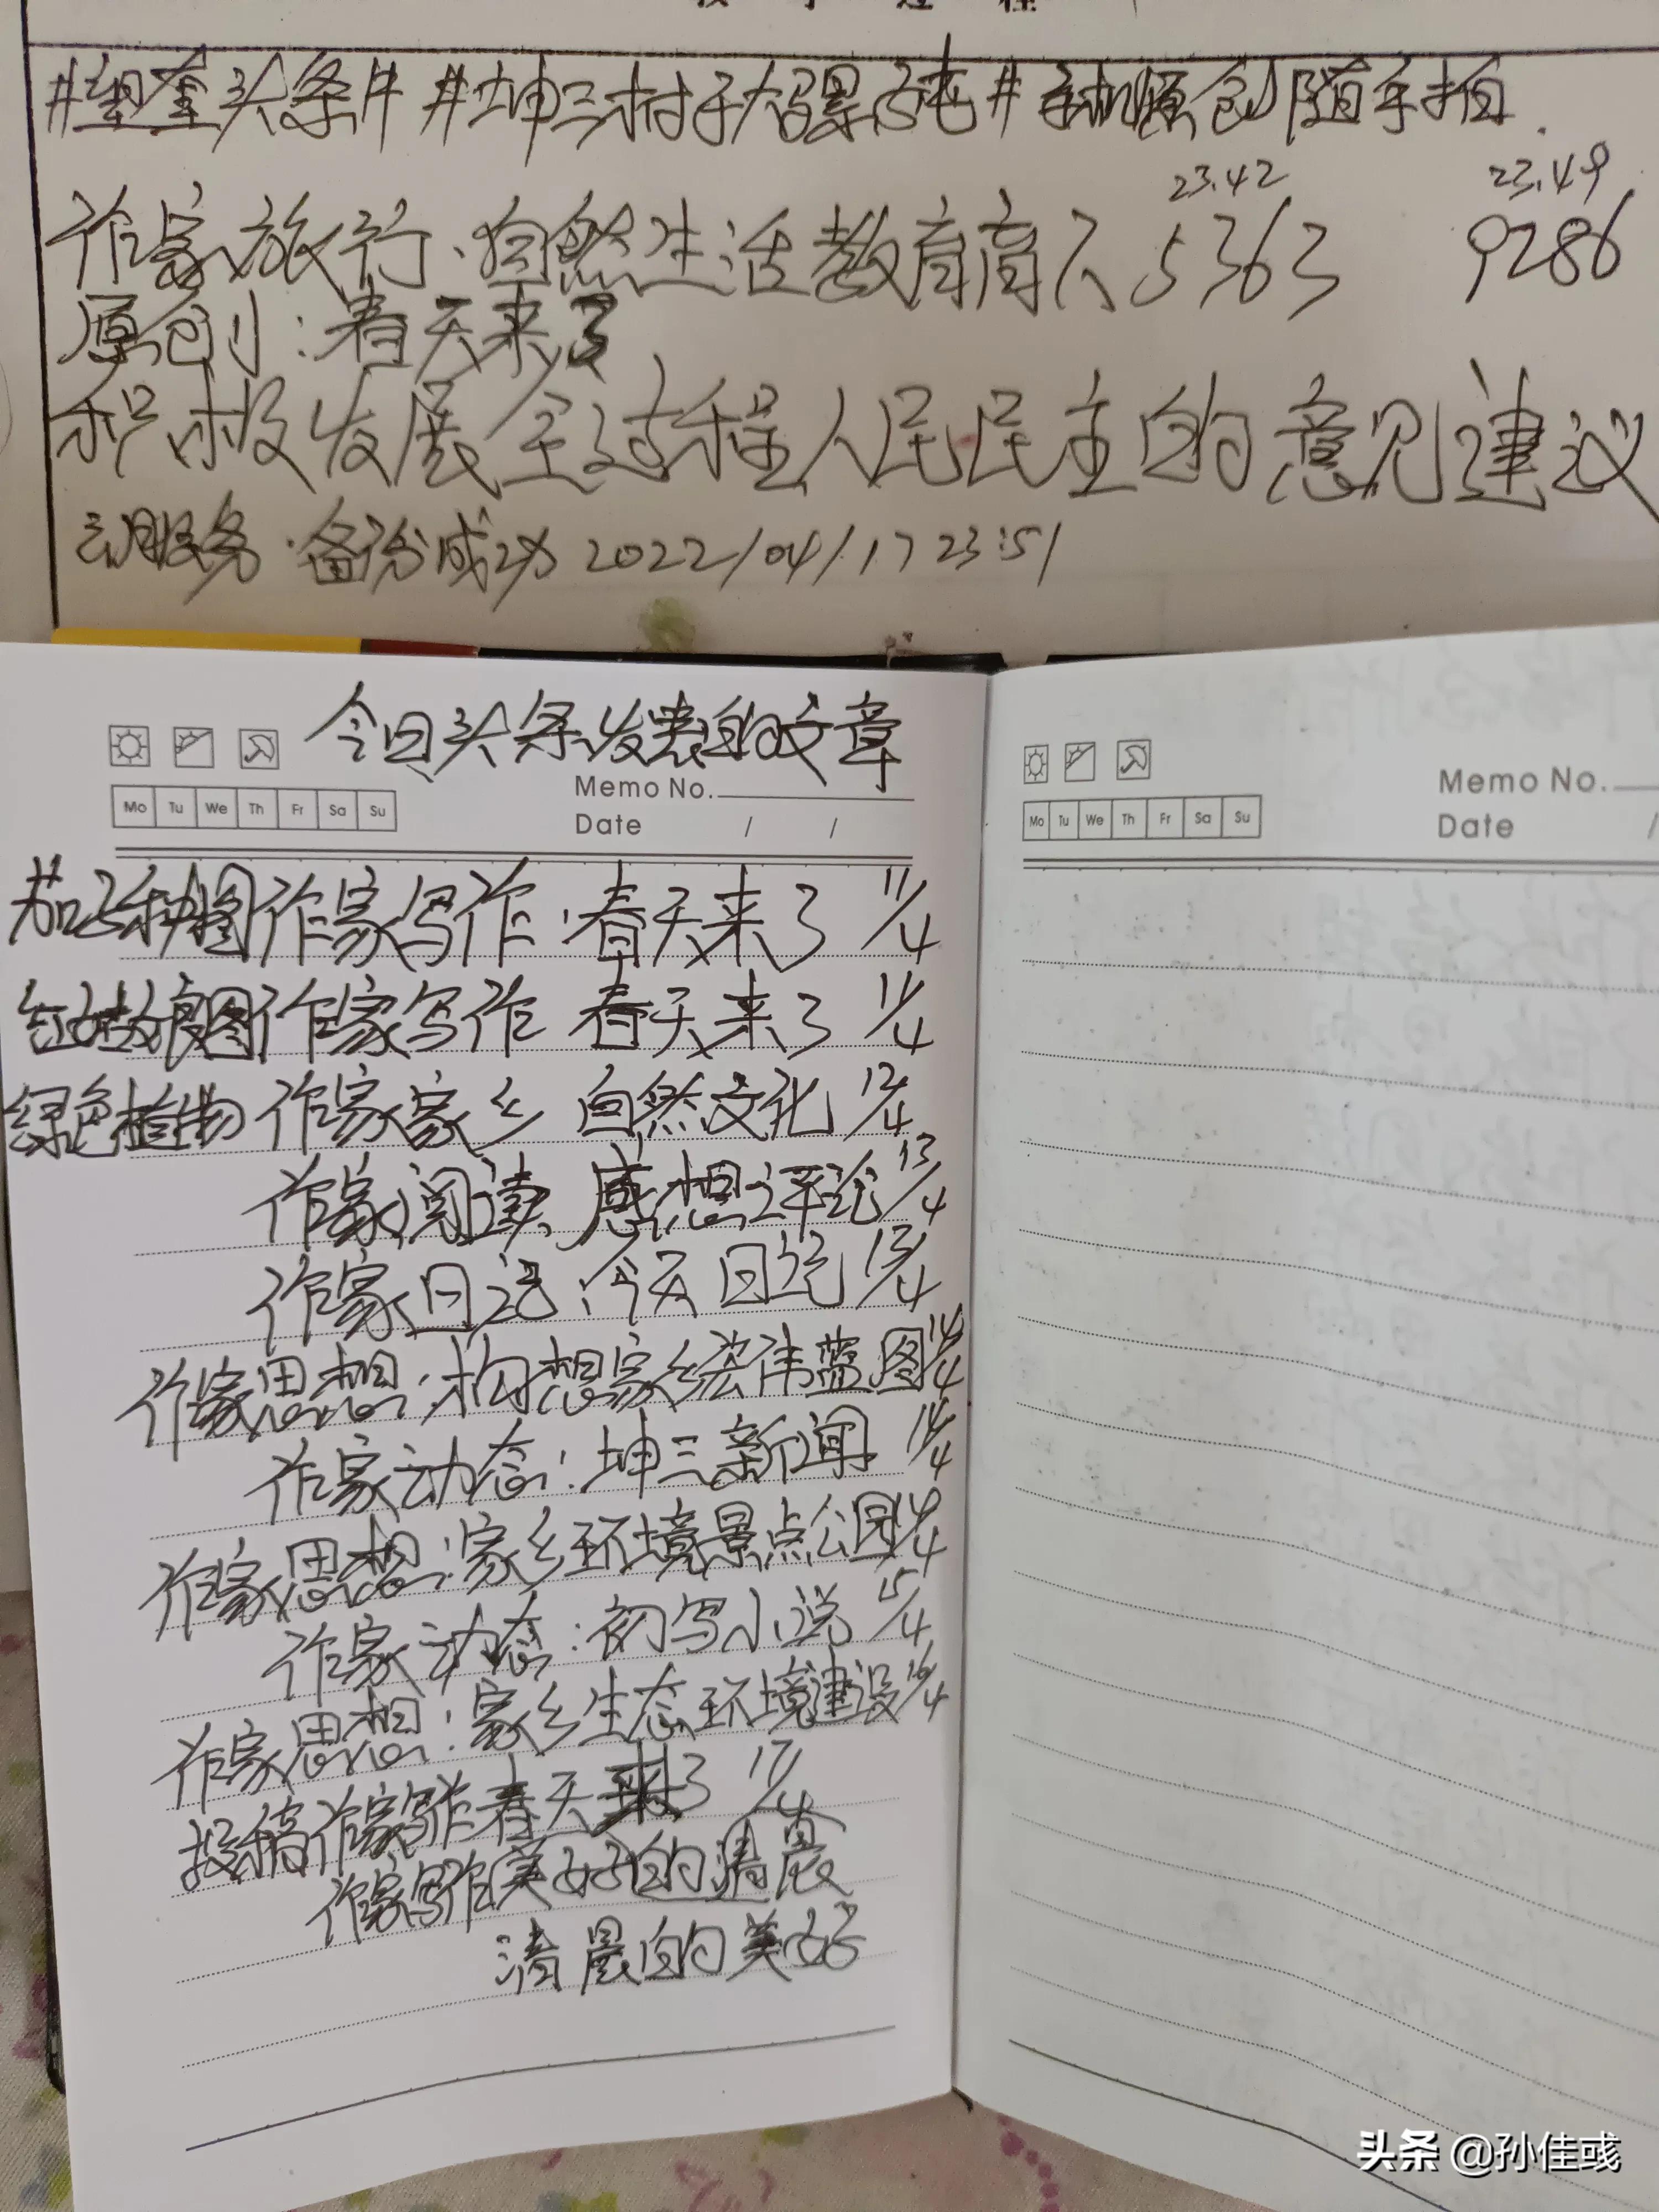 教 学 过 程
#头条# #坤三村# #手机原创随手拍
23.42 23.49
作家旅行:自然生活教育育人 5363 9286
原创:春天来了
积极发展全过程人民民主的意见建议
云服务:备份成功 2022/04/17 23:51
今日头条发表的文章
Memo No.
Mo Tu We Th Fr Sa Su
Date / /
Memo No.
Mo Tu We Th Fr Sa Su
Date /
图作家写作:春天来了 11/4
图作家写作 春天来了 11/4
绿色植物 作家家乡 自然文化 12/4
作家阅读 感想评论 13/4
作家日记:今天日记 13/4
作家思想:构想家乡宏伟蓝图 14/4
作家动态:坤三新闻 14/4
作家思想:家乡环境景点公园 14/4
作家动态:初写小说 15/4
作家思想:家乡生态环境建设 16/4
投稿作家写作春天来了 17/4
作家写作美好的清晨
清晨的美好
头条 @孙佳彧